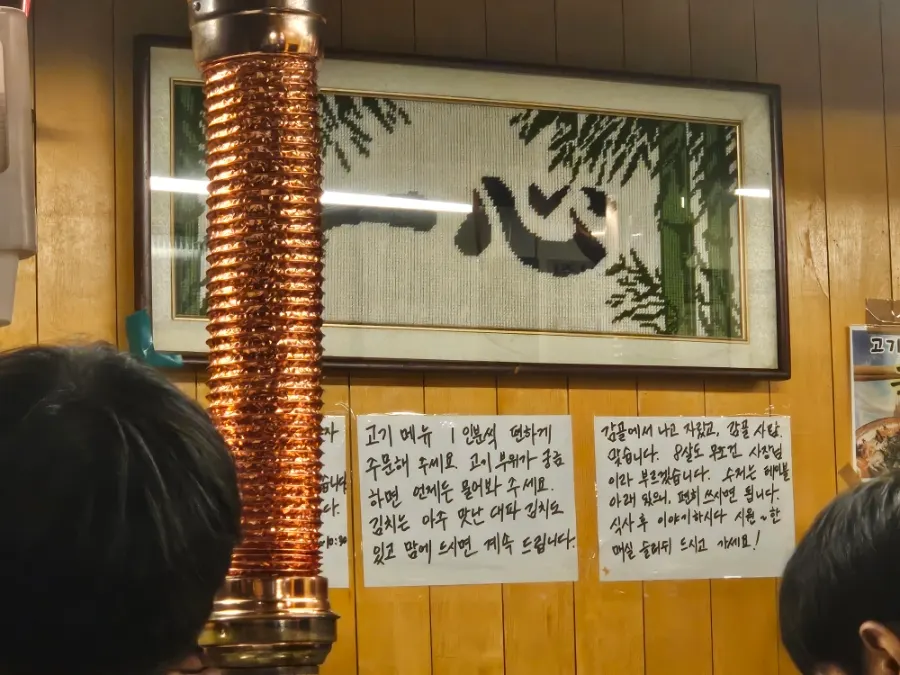 心
자
습니다
다.
10:30
고기 메뉴 1인분씩 편하게
주문해 주세요. 고기 부위가 궁금
하면 언제든 물어봐 주세요.
김치는 아주 맛난 대파 김치도
있고 맘에 드시면 계속 드립니다.
감골에서 나고 자랐고, 감골 사람
맞습니다. 8살도 무조건 사장님
이라 부르겠습니다. 수저는 테이블
아래 있으니, 편히 쓰시면 됩니다.
식사 후 이야기하시다 시원~한
매실 슬러쉬 드시고 가세요!
고기